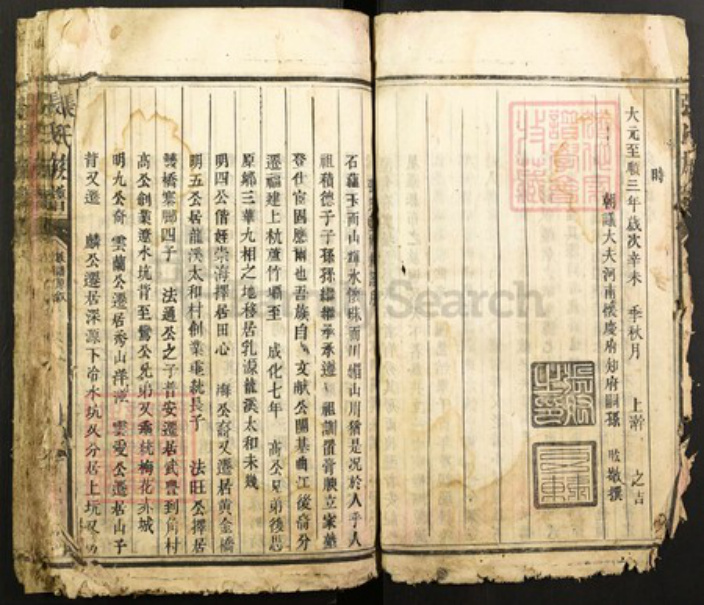 時
大元至順三年歲次辛未 季秋月 上澣 之吉
朝議大夫河南懷慶府知府嗣孫 敬撰
石蘊玉而山輝水懷珠而川媚山川猶是况於人乎人
祖積德子子孫孫繼繼承承遵 祖訓置嘗興立家塾
登仕宦固應爾也吾族自 文献公開基曲江後裔分
遷福建上杭蘆竹壩至 成化七年 高公兄弟後思
原鄉三華九相之地移居乳源龍溪太和未幾
明四公偕姪崇海擇居田心 海公裔又遷居黄金橋
明五公居龍溪太和村創業垂統長子 法旺公擇居
橋寨腳四子 法通公之子普安遷居武豐到角村
高公創業遼水坑背至鸞公兄弟又乘坑梅花赤城
明九公裔 雲蘭公遷居秀山洋 雲愛公遷居山子
背又遷 麟公遷居深源下冷水坑又分居上坑又
張氏族譜
FamilySearch